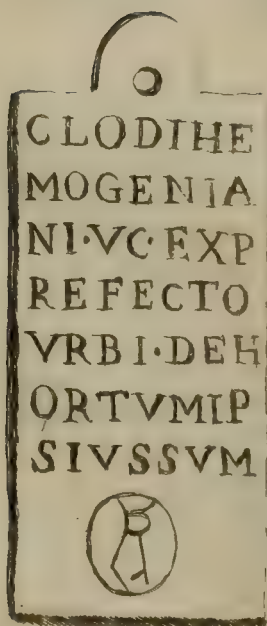 CLODIHE
MOGENIA
NI·VC·EXP
REFECTO
VRBI·DEH
ORTVMIP
SIVSSVM